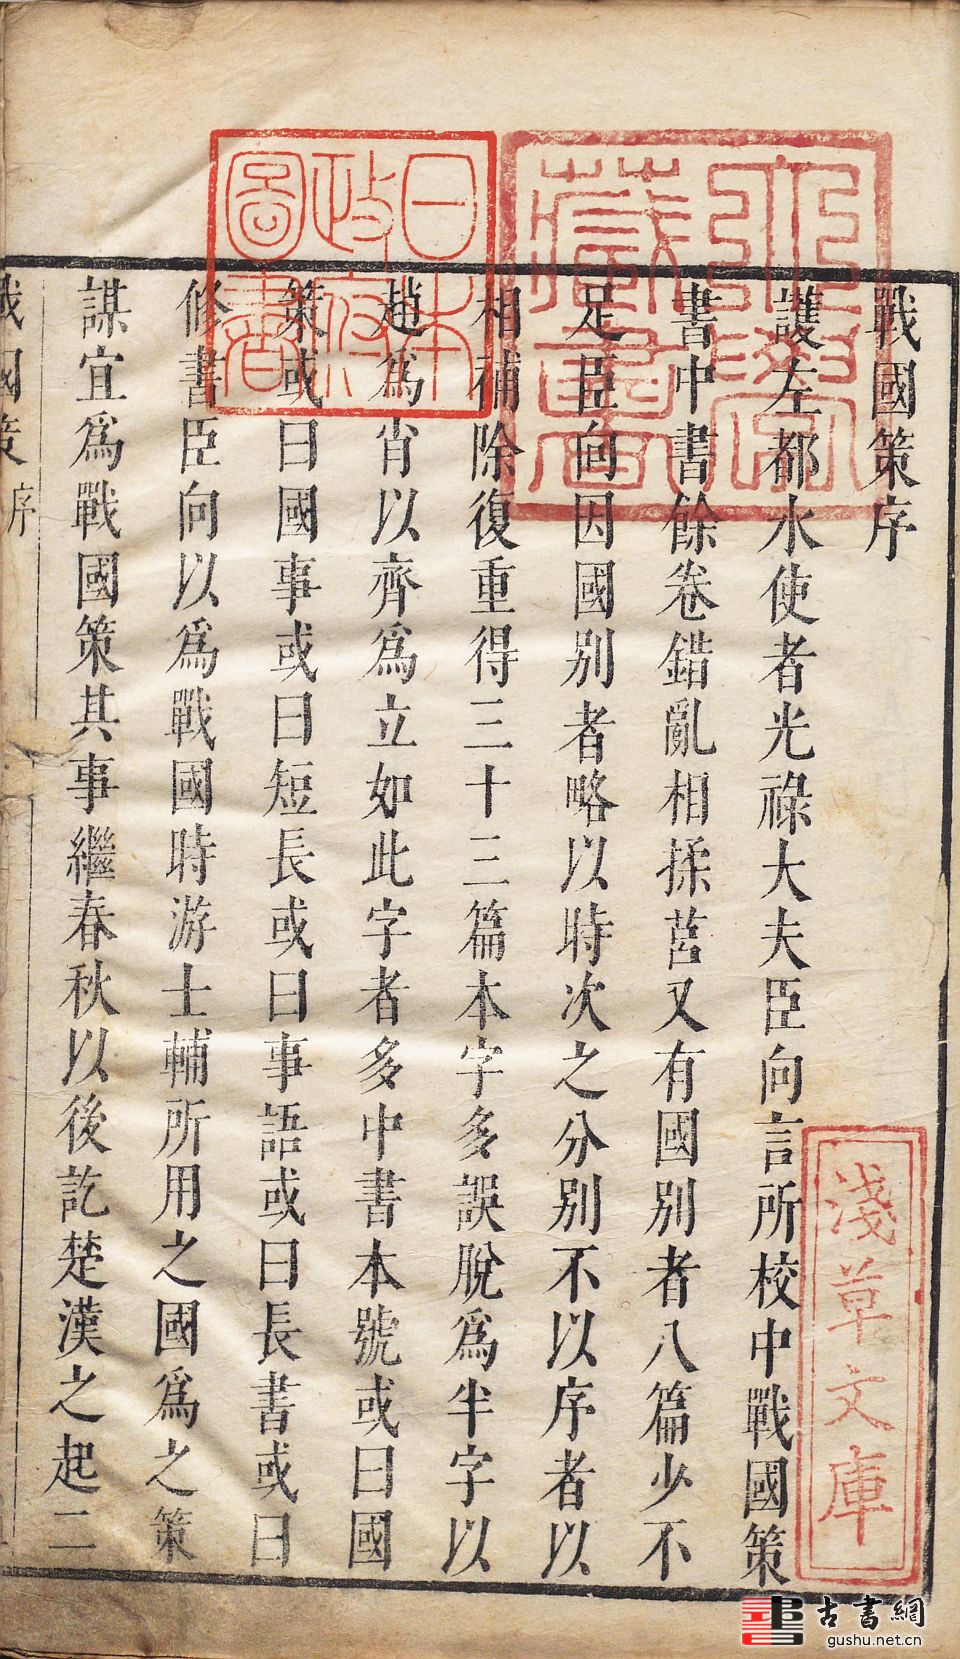 戰國策序
護左都水使者光祿大夫臣向言所校中戰國策
書中書餘卷錯亂相揉莒又有國別者八篇少不
足臣向因國別者略以時次之分別不以序者以
相補除復重得三十三篇本字多誤脫爲半字以
趙爲肖以齊爲立如此字者多中書本號或曰國
策或曰國事或曰短長或曰事語或曰長書或曰
修書臣向以爲戰國時游士輔所用之國爲之策
謀宜爲戰國策其事繼春秋以後訖楚漢之起二
戰國策 序
藏書
日本
政府
圖書
淺草文庫
古書網
gushu.net.cn